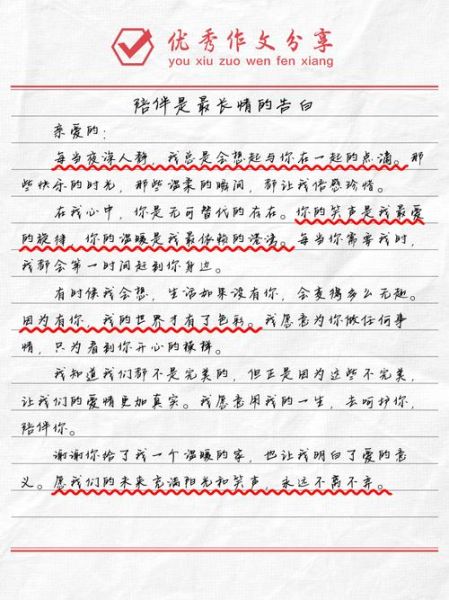 优秀作文分享
you xiu zuo wen fen xiang
陪伴是最长情的告白
亲爱的：
每当夜深人静，我总是会想起与你在一起的点滴。那
些快乐的时光，那些温柔的瞬间，都让我倍感珍惜。
在我心中，你是无可替代的存在。你的笑声是我最爱
的旋律，你的温暖是我最依赖的港湾。每当你需要我时，
我都会第一时间赶到你身边。
有时候我会想，生活如果没有你，会变得多么无趣。
因为有你，我的世界才有了色彩。我愿意为你做任何事
情，只为看到你开心的模样。
我知道我们都不是完美的，但正是因为这些不完美，
让我们的爱情更加真实。我愿意用我的一生，去呵护你，
陪伴你。
谢谢你给了我一个温暖的家，也让我明白了爱的意
义。愿我们的未来充满阳光和笑声，永远不离不弃。